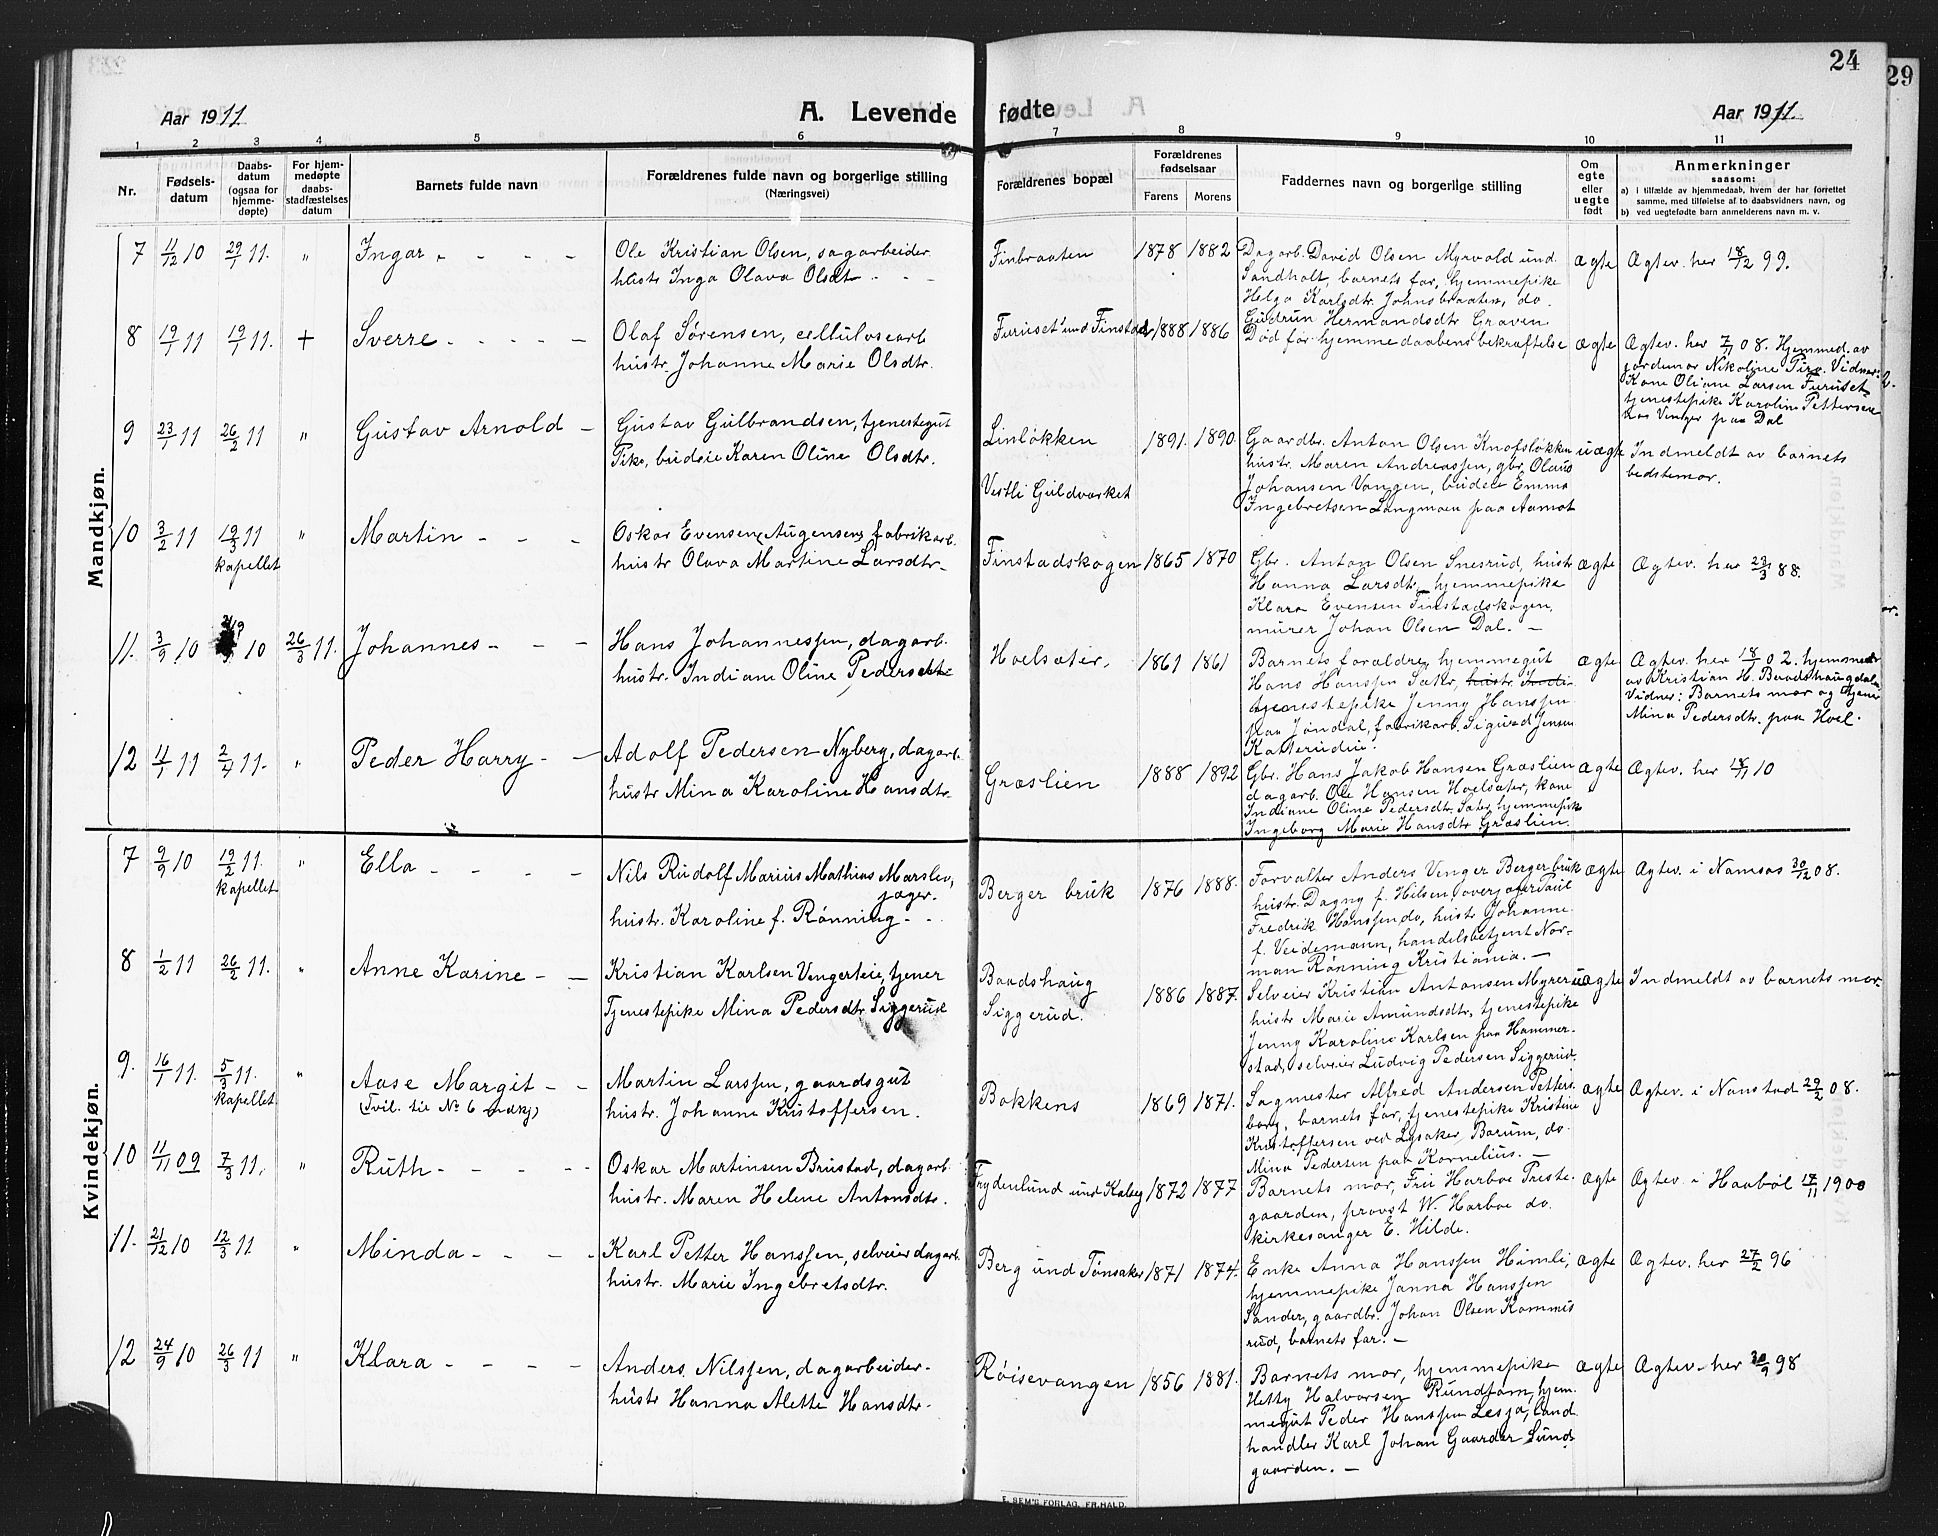 24
29
Aar 1911.
A. Levende fødte
Aar 1911.
1 2 3 4 5 6 7 8 9 10 11
Nr.
Fødsels-
datum
Daabs-
datum
(ogsaa for
hjemme-
døpte)
For hjem-
medøpte
daabs-
stadfæstelses
datum
Barnets fulde navn
Forældrenes fulde navn og borgerlige stilling
(Næringsvei)
Forældrenes bopæl
Forældrenes
fødselsaar
Farens Morens
Faddernes navn og borgerlige stilling
Om
egte
eller
uegte
født
Anmerkninger
saasom:
a) i tilfælde av hjemmedaab, hvem der har forrettet
samme, med tilføielse af to daabsvidners navn, og
b) ved uegtefødte barn anmelderens navn m. v.
Mandkjøn.
7 11/12 10 29/1 11. " Ingar
Ole Kristian Olsen, sagarbeider
hustr Inga Olava Olsdt
Finbraaten 1878 1882
Dagarb. David Olsen Myrvold und
Sandholt, barnets far, hjemmepike
Helga Karlsdtr. Johnsbraaten, do.
Gudrun Hermandsdtr Graven
ægte Ægtev. her 18/2 99.
8 19/1 11 19/1 11. + Sverre
Olaf Sørensen, cellulosearb
hustr. Johanne Marie Olsdtr.
Furuset und Finstad 1888 1886
Død før hjemmedaabens bekræftelse
ægte Ægtev. her 7/11 08. Hjemmed. av
jordemor Nikoline Pire. Vidner:
Kone Oliane Larsen Furuset
tjenestepike Karoline Pettersen
hos Venger paa Dal
9 23/1 11 26/2 11 " Gustav Arnold
Gustav Gulbrandsen, tjenestegut
Pike, budeie Karen Oline Olsdtr.
Linløkken
Vestli Guldværket
1891. 1890.
Gaardbr. Anton Olsen Knofsløkken
hustr. Maren Andreassen, gbr. Olaus
Johansen Vangen, budeie Emma
Ingebretsen Langmoen paa Aamot
uægte Indmeldt av barnets
bedstemor.
10 3/2 11 19/3 11 " Martin
kapellet
Oskar Evensen (Augensen) fabrikarb.
hustr Olava Martine Larsdtr
Finstadskogen 1865 1870
Gbr. Anton Olsen Snesrud, hustr
Hanna Larsdtr, hjemmepike
Klara Evensen Finstadskogen,
murer Johan Olsen Dal.
ægte Ægtev. her 23/3 88.
11. 3/9 10 10 26/3 11. Johannes
Hans Johannessen, dagarb.
hustr. Indiane Oline Pedersdtr
Hoelsæter, 1861 1861
Barnets forældre, hjemmegut
Hans Hanssen Sæter, hustr. Indi-
tjenestepike Jenny Hanssen
paa Jøndal, fabrikarb. Sigurd Jensen
Katterudeie.
ægte Ægtev. her 18/10 02. hjemmedr
av Kristian H. Baadshaugdalen
Vidner: Barnets mor og tjene
Mina Pedersdtr. paa Hoel.
12 11/1 11 2/4 11. " Peder Harry
Adolf Pedersen Nyberg, dagarb.
hustr Mina Karoline Hansdtr
Græslien 1888 1892
Gbr. Hans Jakob Hansen Græslien
dagarb. Ole Hansen Hoelsæter, kone
Indiane Oline Pedersdtr. Sæter, hjemmepik
Ingeborg Marie Hansdtr Græslien.
ægte Ægtev. her 18/11 10
Kvindekjøn.
7 9/9 10 19/2 11. " Ella
kapellet
Nils Rudolf Marius Mathias Marslev,
jæger.
hustr. Karoline f. Rønning
Berger bruk 1876 1888.
Forvalter Anders Venger Berger bruk
hustr. Dagny f. Hilsen, overjæger Paul
Fredrik Hanssen do, hustr Johanne
f. Veidemann, handelsbetjent Nor-
man Rønning Kristiania.
ægte Ægtev. i Namsos 30/12 08.
8 1/2 11 26/2 11. " Anne Karine
Kristian Karlsen Vengereie, tjener
Tjenestepike Mina Pedersdtr. Siggerud
Baadshaug
Siggerud.
1886 1887.
Selveier Kristian Antonsen Myrer
hustr Marie Amundsdtr, tjenestepike
Jenny Karoline Karlsen paa Hammer-
stad, selveier Ludvig Pedersen Siggerud.
uægte Indmeldt av barnets mor.
9. 16/1 11. 5/3 11. " Aase Margit
kapellet (Tvil. til No 6 mdkj)
Martin Larssen, gaardsgut
hustr. Johanne Kristoffersen.
Bakkens 1869 1871.
Sagmester Alfred Andersen Petters-
borg, barnets far, tjenestepike Kristine
Kristoffersen ved Lysaker, Bærum, do.
Mina Pedersen paa Kornelius.
ægte Ægtev. i Nanstad 29/2 08.
10 11/11 09 7/3 11, " Ruth
Oskar Martinsen Brustad, dagarb
hustr. Maren Helene Antonsdtr.
Frydenlund und Kabeg 1872 1877
Barnets mor, Fru Harboe Preste-
gaarden, provst W. Harboe do.
kirkesanger E. Hilde.
ægte Ægtev. i Haabøl 17/11 1900
11. 21/12 10 12/3 11 " Minda
Karl Petter Hanssen, selveier dagarb.
hustr. Marie Ingebretsdtr.
Berg und Tønsaker 1871 1874.
Enke Anna Hanssen Himli,
hjemmepike Janna Hanssen
Sander, gaardbr. Johan Olsen Kammis
rud, barnets far.
ægte Ægtev. her 27/2 96
12 24/9 10 26/3 11 " Klara
Anders Nilssen, dagarbeider
hustr Hanna Alette Hansdtr.
Røisevangen 1856 1881.
Barnets mor, hjemmepike
Hetty Halvorsen Rundtom, hjem-
megut Peder Hanssen Lesja, land
handler Karl Johan Gaarder Sund
gaarden.
ægte Ægtev. her 30/9 98
E. SEM'S FORLAG, FR.HALD.